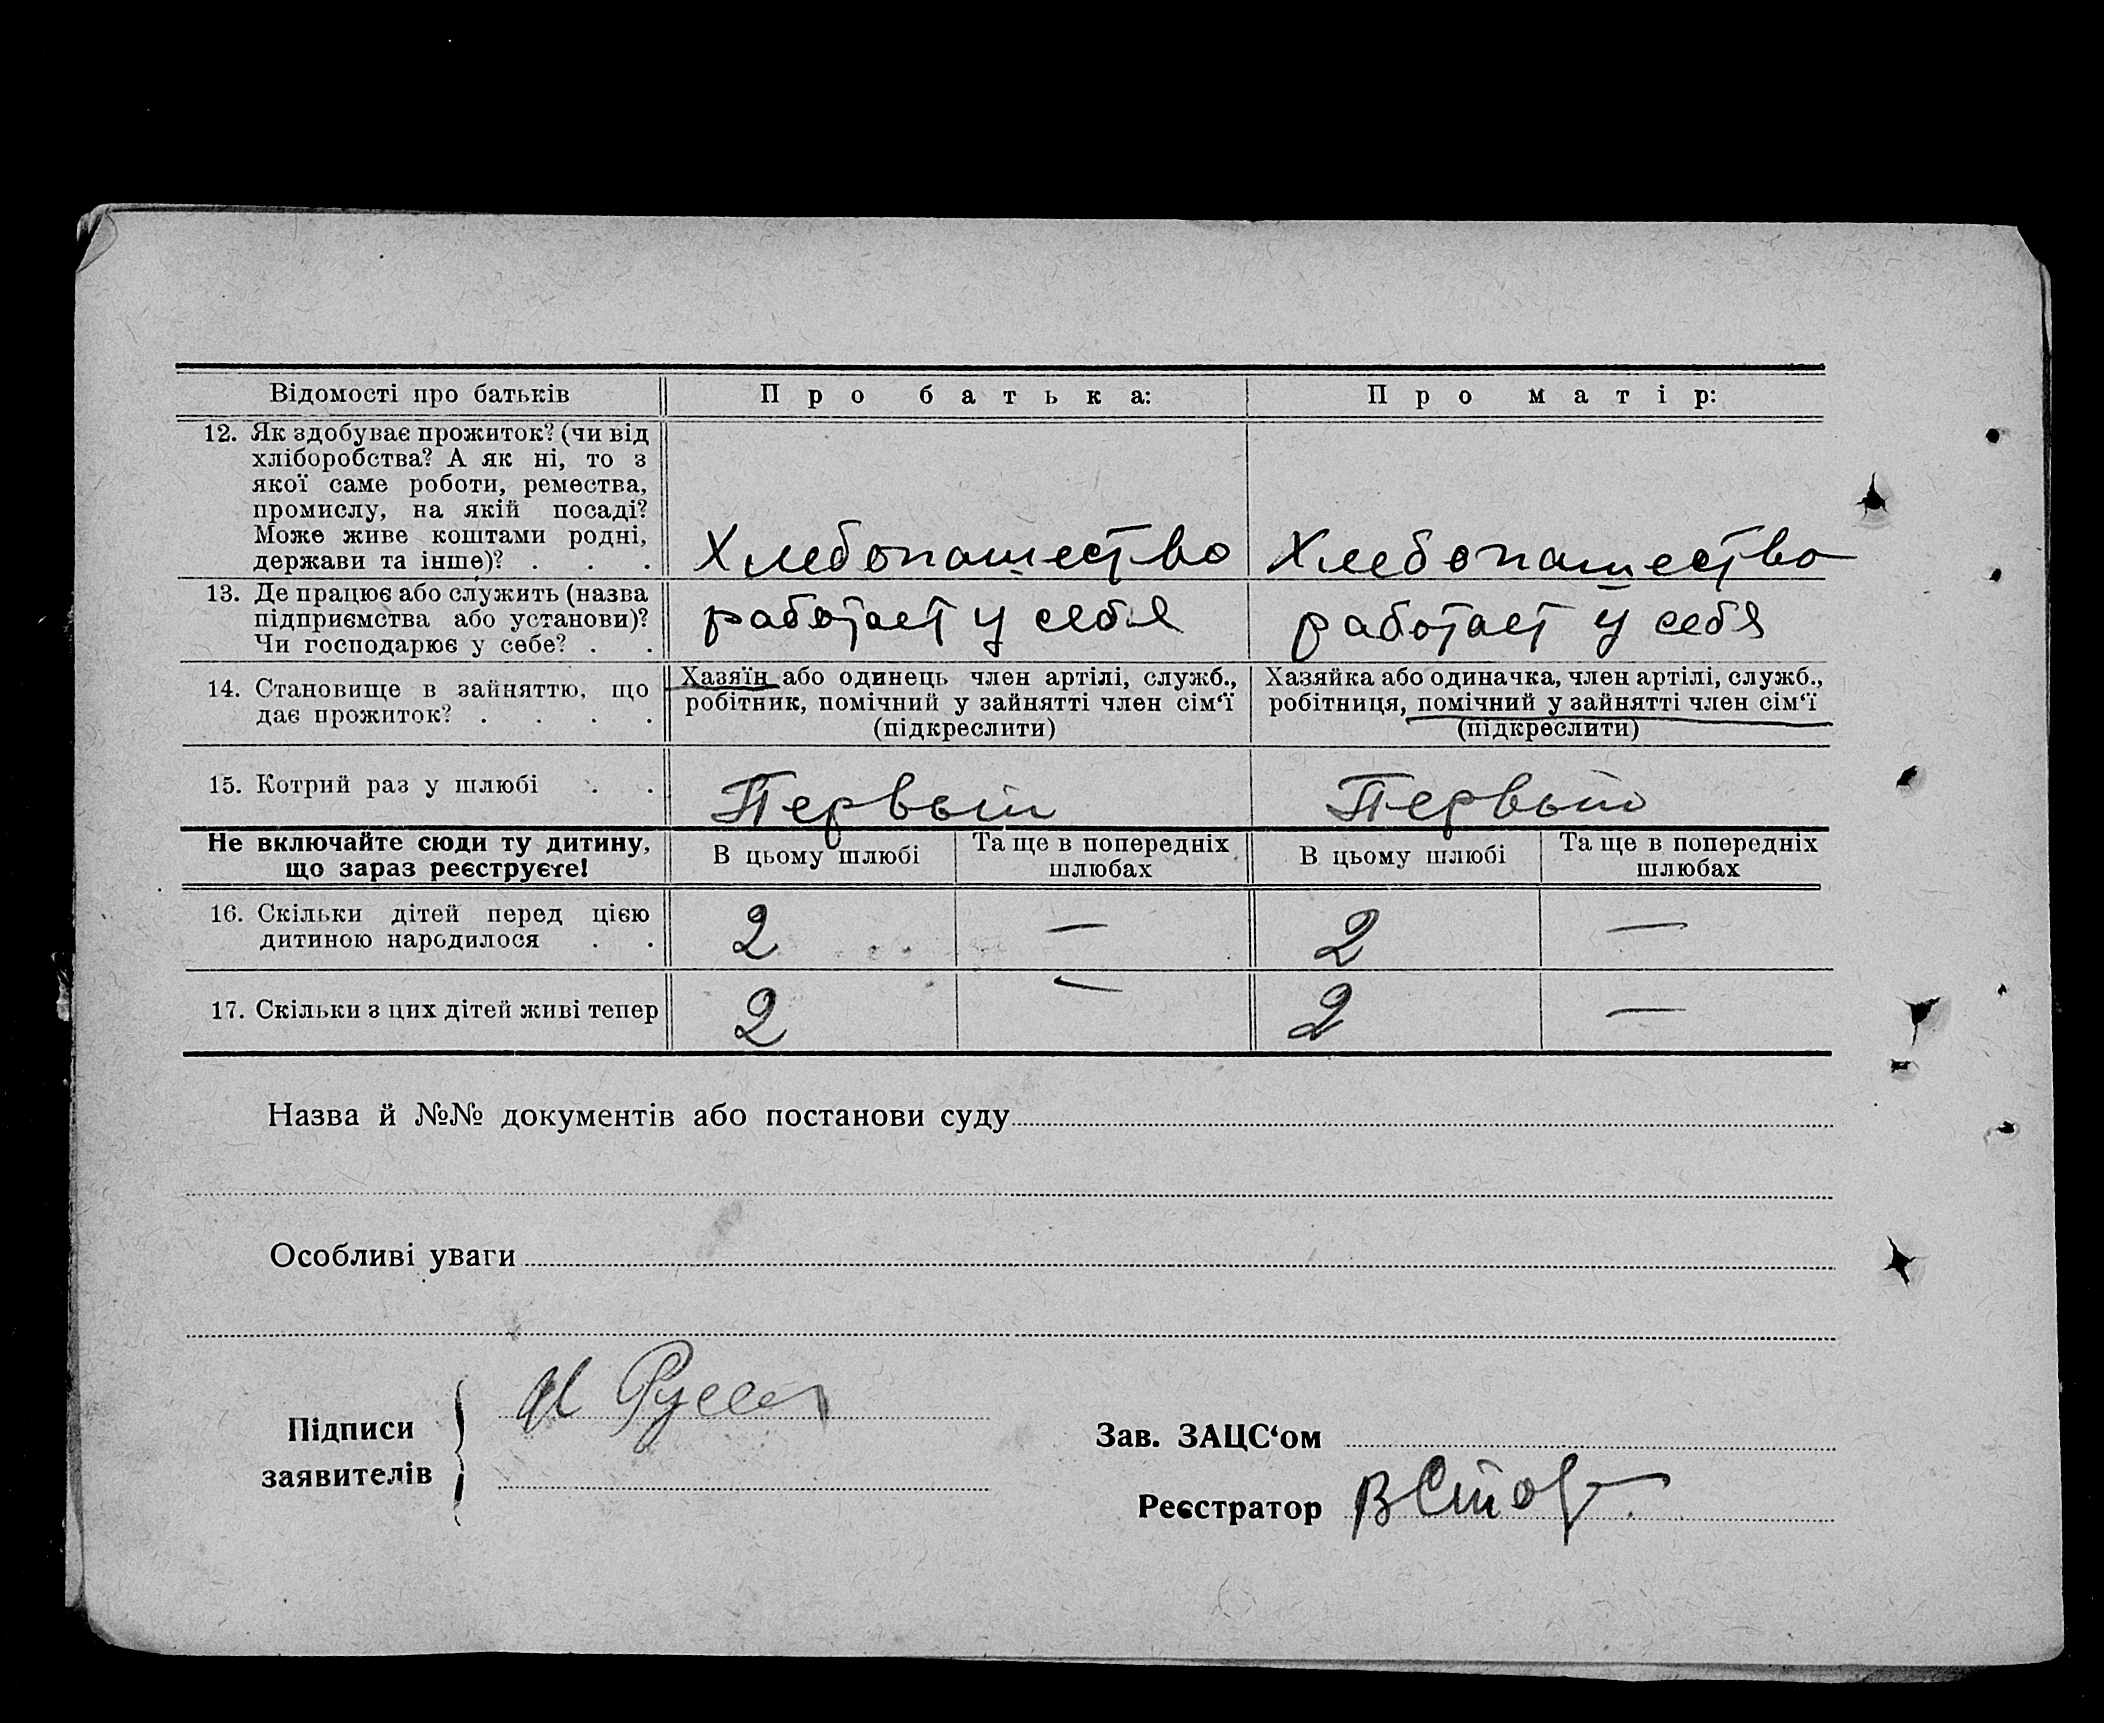 Відомості про батьків Про батька: Про матір:
12. Як здобуває прожиток? (чи від
хліборобства? А як ні, то з
якої саме роботи, ремества,
промислу, на якій посаді?
Може живе коштами родні,
держави та інше)? . . . Хлебопашество Хлебопашество
13. Де працює або служить (назва
підприємства або установи)?
Чи господарює у себе? . . работает у себя работает у себя
14. Становище в зайняттю, що
дає прожиток? . . . .
Хазяїн або одинець член артілі, служб.,
робітник, помічний у зайнятті член сім‘ї
(підкреслити)
Хазяйка або одиначка, член артілі, служб.,
робітниця, помічний у зайнятті член сім‘ї
(підкреслити)
15. Котрий раз у шлюбі . . Первый Первый
Не включайте сюди ту дитину,
що зараз реєструєте!
В цьому шлюбі
Та ще в попередніх
шлюбах
В цьому шлюбі
Та ще в попередніх
шлюбах
16. Скільки дітей перед цією
дитиною народилося . . 2 — 2 —
17. Скільки з цих дітей живі тепер 2 — 2 —
Назва й №№ документів або постанови суду
Особливі уваги
Підписи
заявителів
Зав. ЗАЦС‘ом
Реєстратор